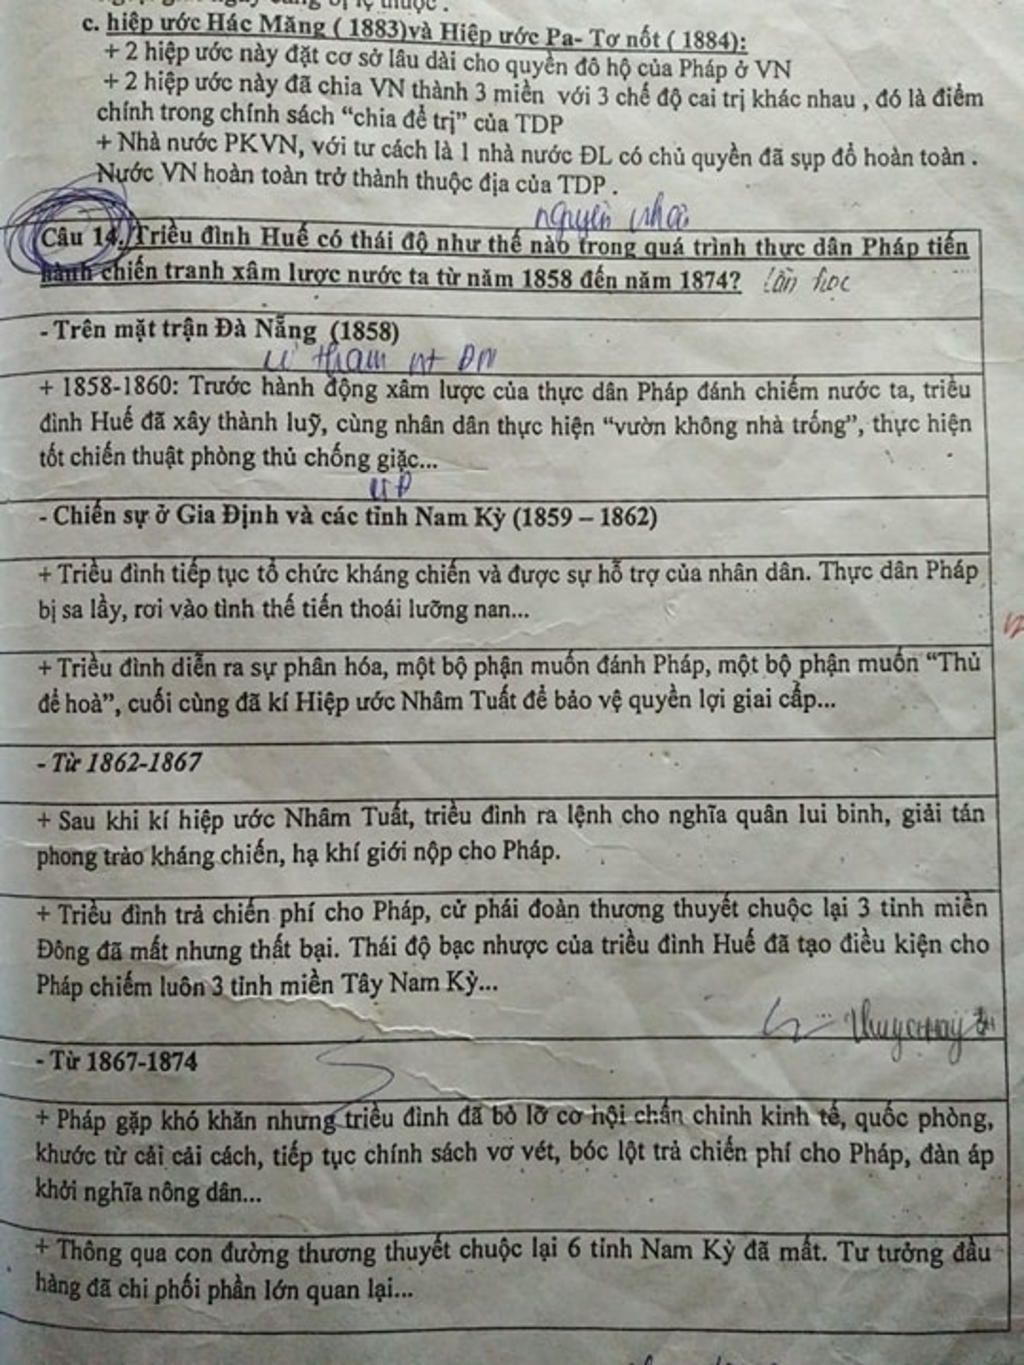 c. hiệp ước Hác Măng ( 1883)và Hiệp ước Pa- Tơ nốt ( 1884):
+ 2 hiệp ước này đặt cơ sở lâu dài cho quyền đô hộ của Pháp ở VN
+ 2 hiệp ước này đã chia VN thành 3 miền với 3 chế độ cai trị khác nhau , đó là điểm
chính trong chính sách “chia để trị” của TDP
+ Nhà nước PKVN, với tư cách là 1 nhà nước ĐL có chủ quyền đã sụp đổ hoàn toàn .
Nước VN hoàn toàn trở thành thuộc địa của TDP .
Câu 14. Triều đình Huế có thái độ như thế nào trong quá trình thực dân Pháp tiến
hành chiến tranh xâm lược nước ta từ năm 1858 đến năm 1874?
- Trên mặt trận Đà Nẵng (1858)
+ 1858-1860: Trước hành động xâm lược của thực dân Pháp đánh chiếm nước ta, triều
đình Huế đã xây thành luỹ, cùng nhân dân thực hiện “vườn không nhà trống”, thực hiện
tốt chiến thuật phòng thủ chống giặc...
- Chiến sự ở Gia Định và các tỉnh Nam Kỳ (1859 – 1862)
+ Triều đình tiếp tục tổ chức kháng chiến và được sự hỗ trợ của nhân dân. Thực dân Pháp
bị sa lầy, rơi vào tình thế tiến thoái lưỡng nan...
+ Triều đình diễn ra sự phân hóa, một bộ phận muốn đánh Pháp, một bộ phận muốn “Thủ
để hoà”, cuối cùng đã kí Hiệp ước Nhâm Tuất để bảo vệ quyền lợi giai cấp...
- Từ 1862-1867
+ Sau khi kí hiệp ước Nhâm Tuất, triều đình ra lệnh cho nghĩa quân lui binh, giải tán
phong trào kháng chiến, hạ khí giới nộp cho Pháp.
+ Triều đình trả chiến phí cho Pháp, cử phái đoàn thương thuyết chuộc lại 3 tỉnh miền
Đông đã mất nhưng thất bại. Thái độ bạc nhược của triều đình Huế đã tạo điều kiện cho
Pháp chiếm luôn 3 tỉnh miền Tây Nam Kỳ...
- Từ 1867-1874
+ Pháp gặp khó khăn nhưng triều đình đã bỏ lỡ cơ hội chấn chỉnh kinh tế, quốc phòng,
khước từ cải cải cách, tiếp tục chính sách vơ vét, bóc lột trả chiến phí cho Pháp, đàn áp
khởi nghĩa nông dân...
+ Thông qua con đường thương thuyết chuộc lại 6 tỉnh Nam Kỳ đã mất. Tư tưởng đầu
hàng đã chi phối phần lớn quan lại...